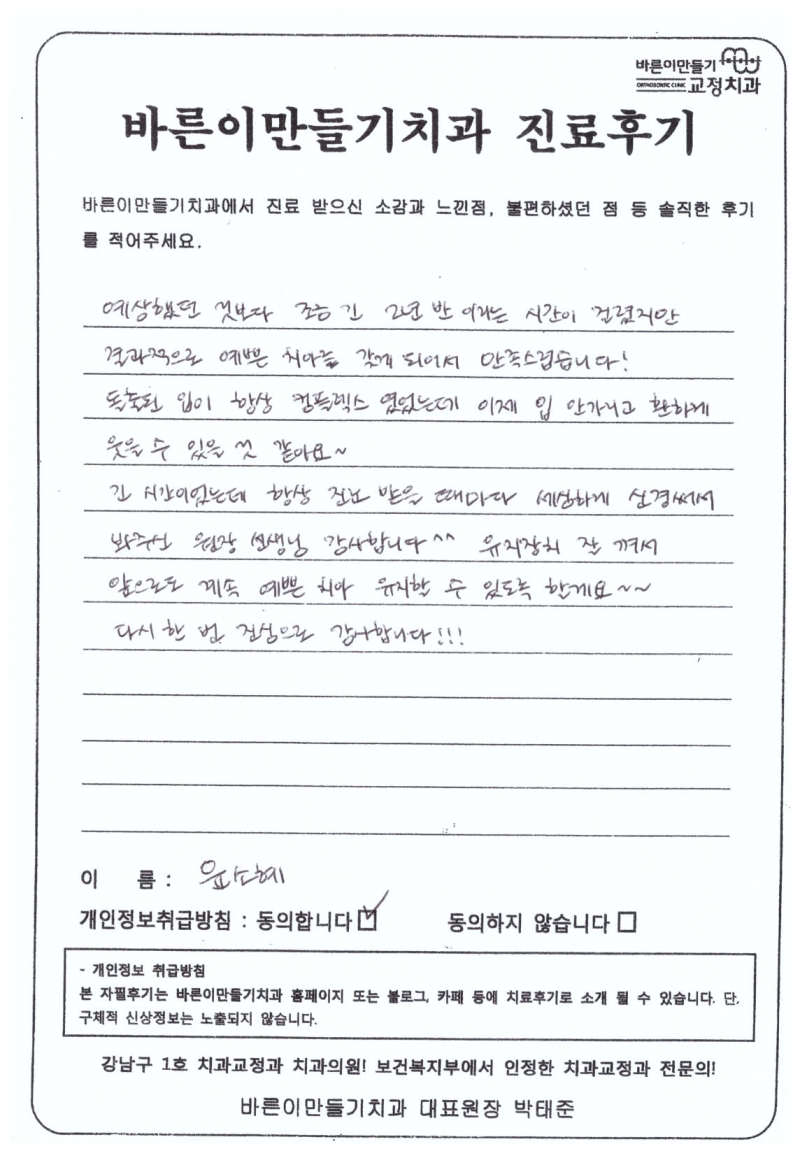 바른이만들기
ORTHODONTIC CLINIC 교정치과
바른이만들기치과 진료후기
바른이만들기치과에서 진료 받으신 소감과 느낀점, 불편하셨던 점 등 솔직한 후기
를 적어주세요.
예상했던 것보다 조금 긴 2년 반 이라는 시간이 걸렸지만
결과적으로 예쁜 치아를 갖게 되어서 만족스럽습니다!
돌출된 입이 항상 컴플렉스 였었는데 이제 입 안가리고 환하게
웃을 수 있을 것 같아요~
긴 시간이었는데 항상 진료 받을 때마다 세심하게 신경써서
봐주신 원장 선생님 감사합니다^^ 유지장치 잘 껴서
앞으로도 계속 예쁜 치아 유지할 수 있도록 할게요~~
다시 한 번 진심으로 감사합니다!!!
이 름 : 윤소혜
개인정보취급방침 : 동의합니다☑ 동의하지 않습니다☐
- 개인정보 취급방침
본 자필후기는 바른이만들기치과 홈페이지 또는 블로그, 카페 등에 치료후기로 소개 될 수 있습니다. 단,
구체적 신상정보는 노출되지 않습니다.
강남구 1호 치과교정과 치과의원! 보건복지부에서 인정한 치과교정과 전문의!
바른이만들기치과 대표원장 박태준